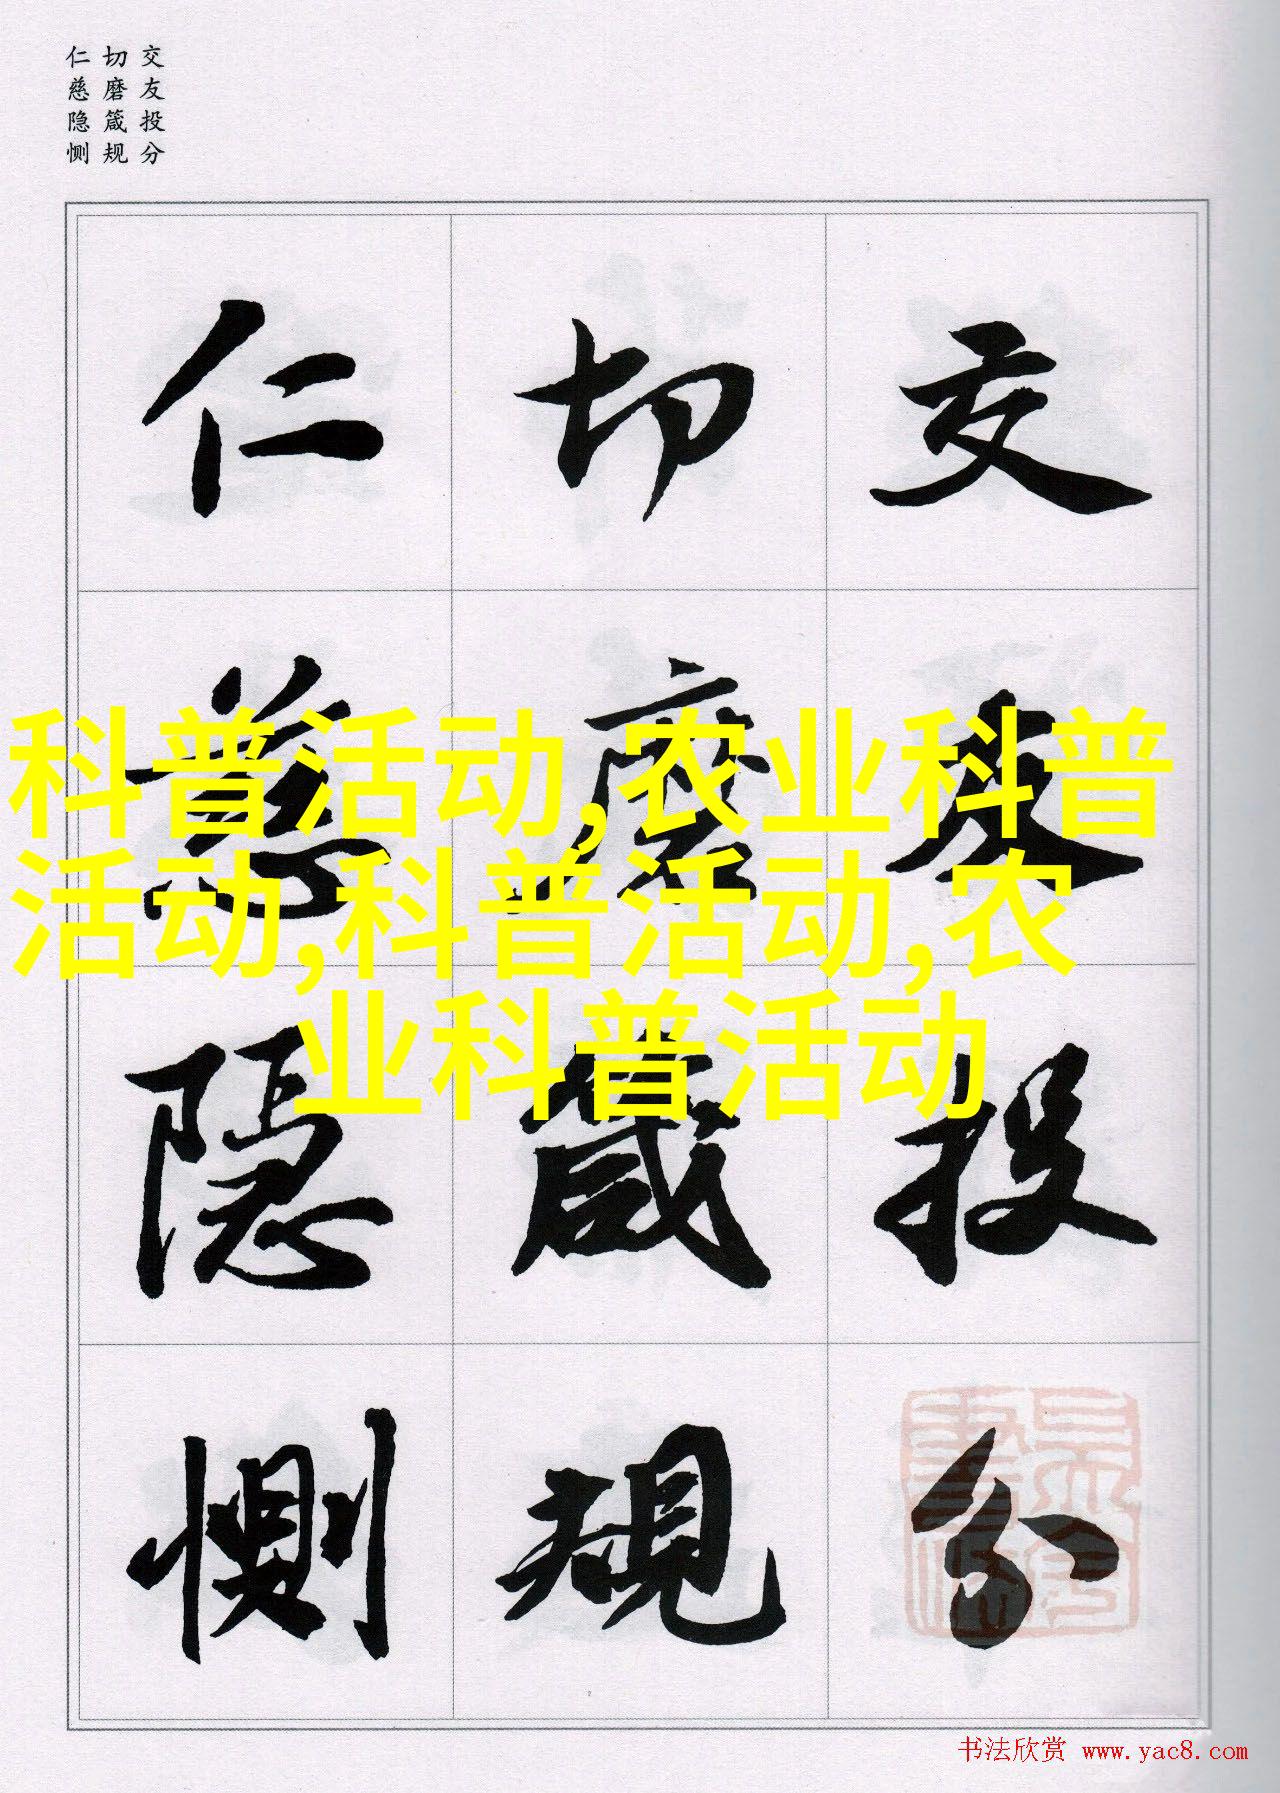 交友投分
切磨箴规
仁慈隐恻
交友投分
切磨箴規
仁慈隱惻
科普活动,农业科普
活动,科普活动,农
业科普活动
书法欣赏 www.yac8.com